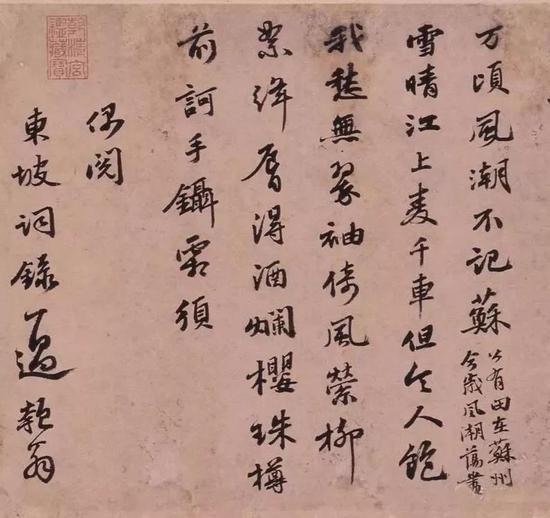 万頃風潮不記蘇
公有田在蘇州
今歲風潮蕩盡
雪晴江上麦千車但令人飽
我愁無翠袖倚風縈柳
絮絳脣得酒爛櫻珠樽
前訶手鑷霜須
偶閱
東坡詞錄一過匏翁
乾清宮
鑑藏寶